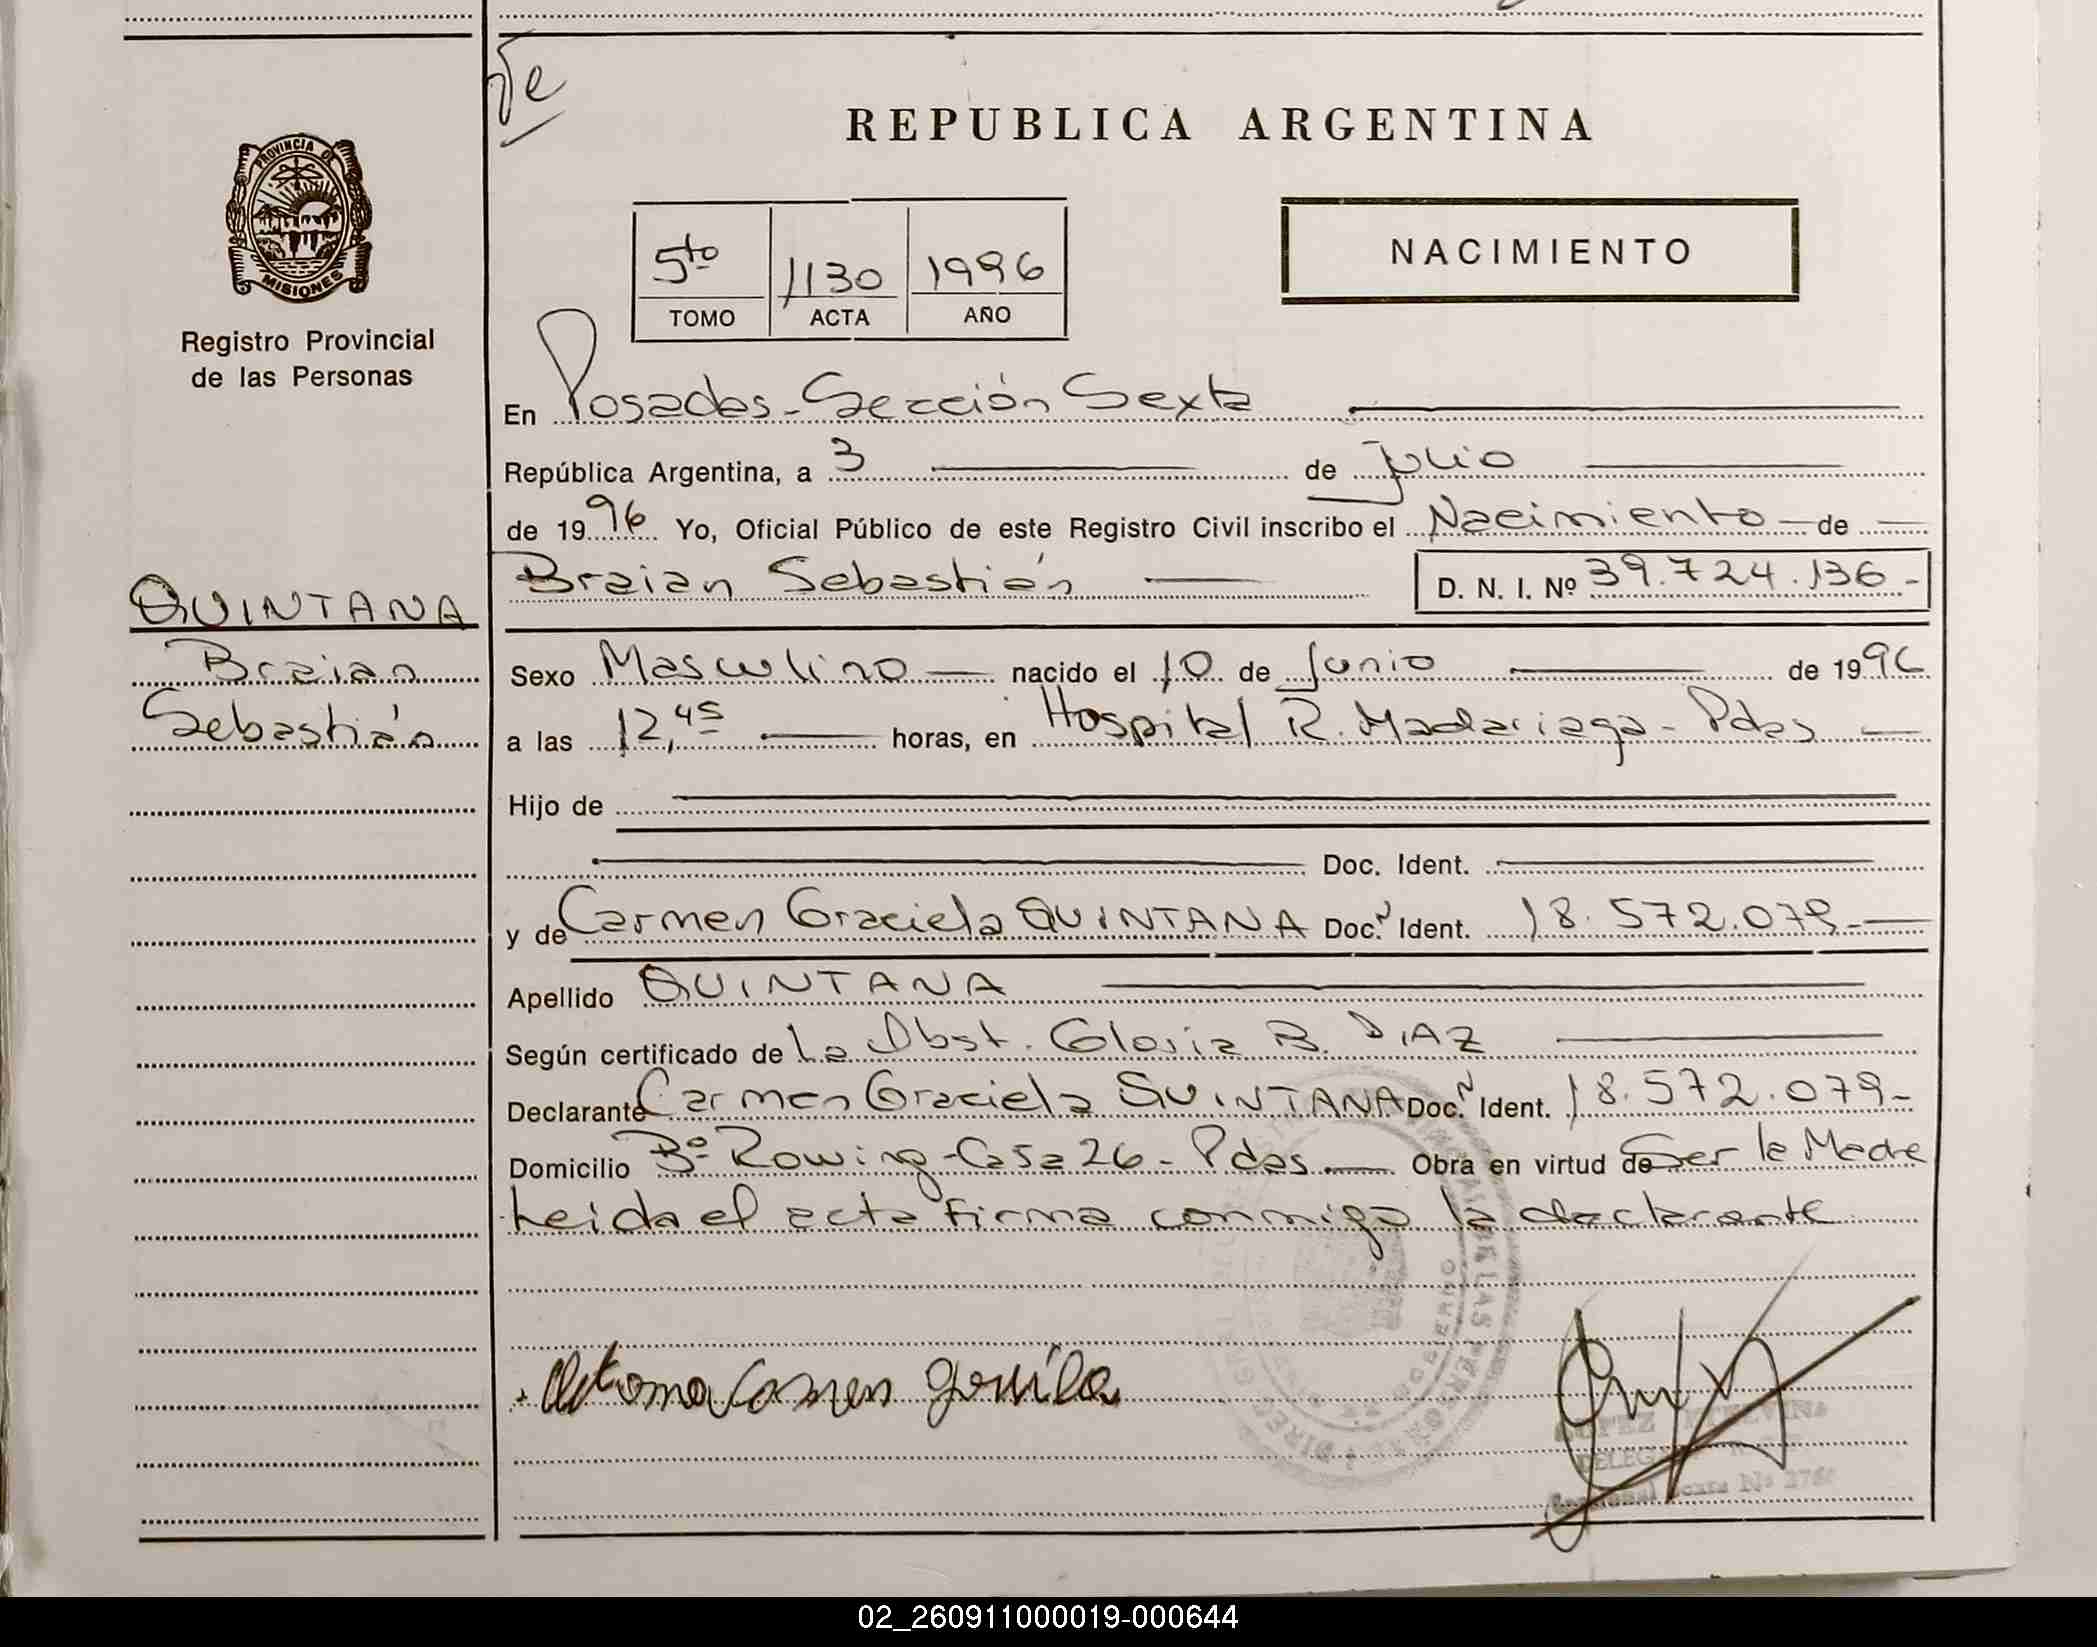 REPUBLICA ARGENTINA
PROVINCIA DE
MISIONES
Registro Provincial
de las Personas
5to 1130 1996
TOMO ACTA AÑO
NACIMIENTO
En Posadas - Sección Sexta
República Argentina, a 3 de Julio
de 1996 Yo, Oficial Público de este Registro Civil inscribo el Nacimiento de
Braian Sebastián D. N. I. Nº 39.724.136-
QUINTANA
Braian
Sebastián
Sexo Masculino nacido el 10 de Junio de 1996
a las 12,45 horas, en Hospital R. Madariaga - Pdas
Hijo de
Doc. Ident.
y de Carmen Graciela QUINTANA Doc. Ident. 18.572.079-
Apellido QUINTANA
Según certificado de La Obst. Gloria B. DIAZ
Declarante Carmen Graciela QUINTANA Doc. Ident. 18.572.079-
Domicilio Bº Rowing - Casa 26 - Pdas Obra en virtud de Ser la Madre
Leida el acta firma conmigo la declarante
02_260911000019-000644